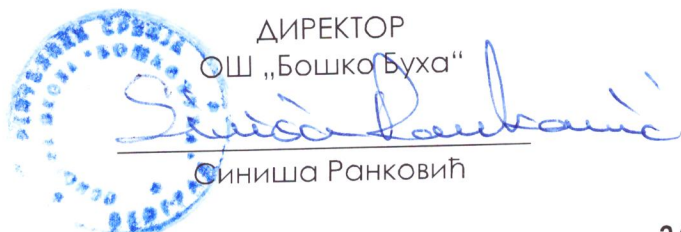 ДИРЕКТОР
ОШ „Бошко Буха“
Siniša Ranković
Синиша Ранковић